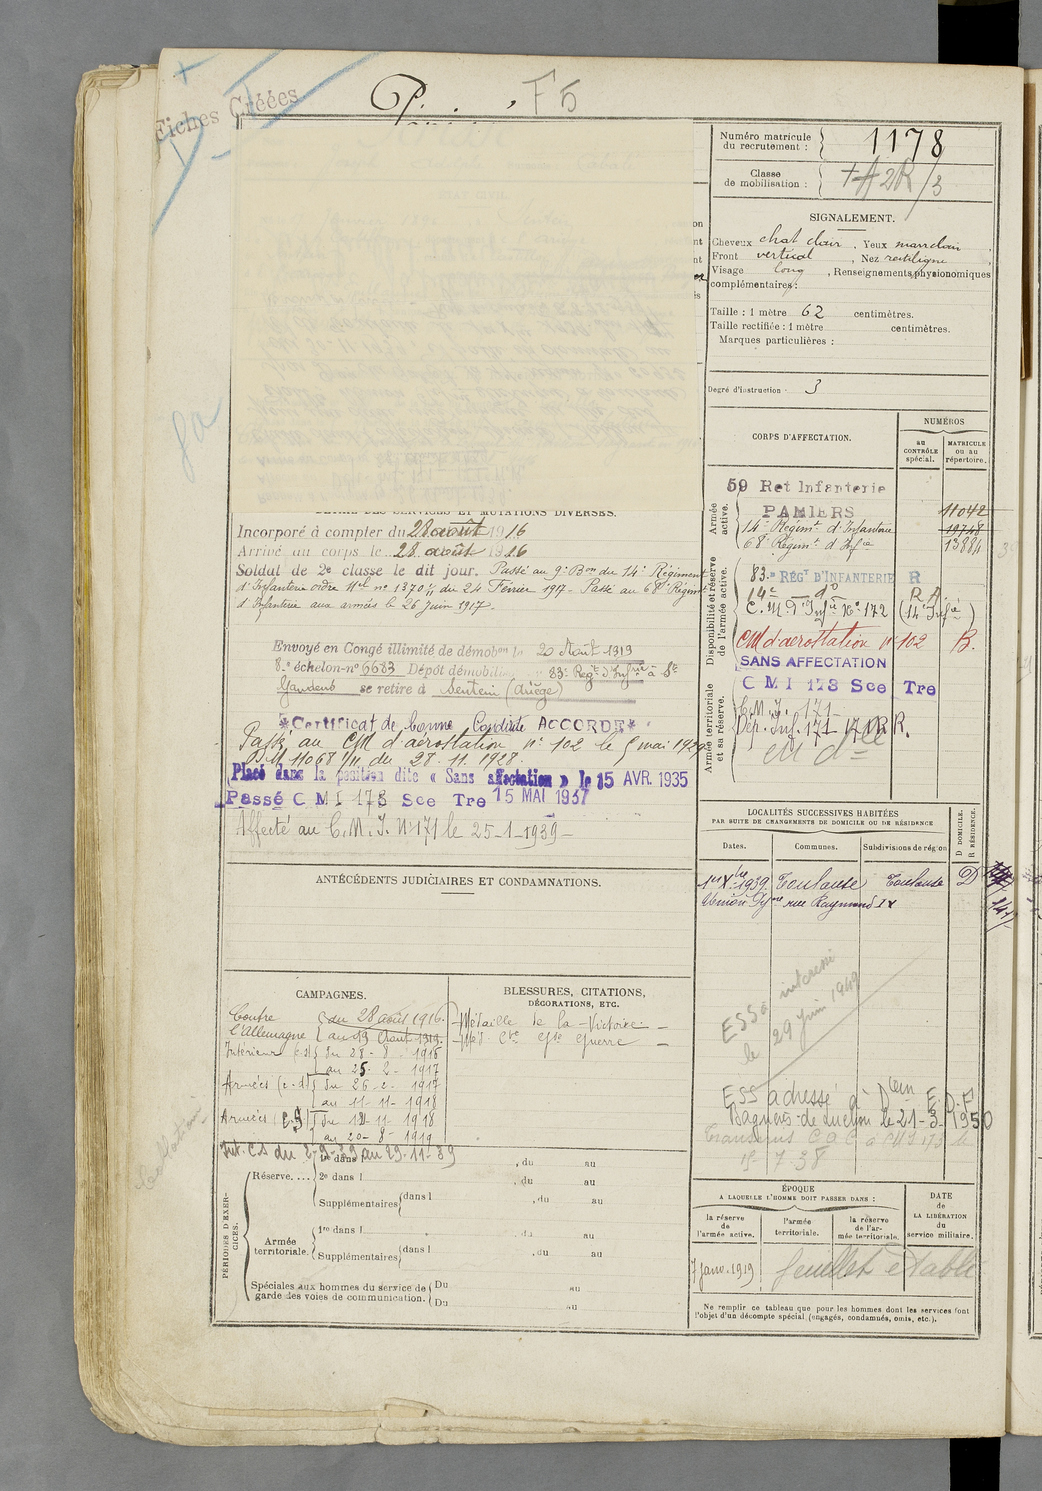 Fiches Créées
P. F5
Numéro matricule du recrutement : 1178
Classe de mobilisation : + A2R/3
SIGNALEMENT.
Cheveux chat clair , Yeux marr clair ,
Front vertical , Nez rectiligne ,
Visage long , Renseignements physionomiques
complémentaires :
Taille : 1 mètre 62 centimètres.
Taille rectifiée : 1 mètre centimètres.
Marques particulières :
Degré d'instruction : 3
CORPS D'AFFECTATION.
NUMÉROS
au CONTRÔLE spécial.
MATRICULE ou au répertoire.
Armée active.
59 Rgt Infanterie
PAMIERS 11042
14e Régimt d'Infanterie 19748
68e Régimt d'Infie 13884
Disponibilité et réserve de l'armée active.
83e RÉGT D'INFANTERIE R
14e — do — R.A.
C.M. d'Infie No 172 (14e Infie)
CM d'aerostation no 102 B.
SANS AFFECTATION
C M I 173 Sce Tre
Armée territoriale et sa réserve.
C.M.I. 171
Dép. Inf. 171 - 17 R.
DÉTAIL DES SERVICES ET MUTATIONS DIVERSES.
Incorporé à compter du 28 août 1916
Arrivé au corps le 28 août 1916
Soldat de 2e classe le dit jour. Passé au 9e Bon du 14e Régiment
d'Infanterie ordre Mel no 1370/11 du 24 Février 1917. Passé au 68e Régimt
d'Infanterie aux armées le 26 Juin 1917.
Envoyé en Congé illimité de démobon le 20 Août 1919
8e échelon no 6683 Dépôt démobilis 83e Regt d'Infrie à St
Gaudens se retire à Sentein (Ariège)
Certificat de bonne Conduite ACCORDÉ
Passé au CM d'aerostation no 102 le 5 mai 1929
DM 11068 1/11 du 28.11.1928
Placé dans la position dite « Sans affectation » le 15 AVR. 1935
Passé C M I 173 Sce Tre 15 MAI 1937
Affecté au C.M.I. No 171 le 25-1-1939 -
ANTÉCÉDENTS JUDICIAIRES ET CONDAMNATIONS.
LOCALITÉS SUCCESSIVES HABITÉES
PAR SUITE DE CHANGEMENTS DE DOMICILE OU DE RÉSIDENCE
Dates.
Communes.
Subdivisions de région
D DOMICILE. R RÉSIDENCE.
1er Xbre 1939. Toulouse Toulouse D
rue Raymond IV
ESS intéressé
le 29 Juin 1949
ESS adressé à Dem E.D.F
Bagnères-de-Luchon le 21-3-1950
CAMPAGNES.
Contre l'Allemagne { du 28 août 1916.
au 19 Août 1919.
Intérieur (c.s) { du 28-8-1916
au 25-2-1917
Armées (c.d) { du 26-2-1917
au 11-11-1918
Armées (C.S) { du 12-11-1918
au 20-8-1919
Int. C.S du 2-9-39 au 29-11-39
BLESSURES, CITATIONS,
DÉCORATIONS, ETC.
- Médaille de la Victoire -
- Méd. Cve Gde Guerre -
PÉRIODES D'EXERCICES.
Réserve.... 1re dans l , du au
2e dans l , du au
Supplémentaires { dans l , du au
Armée territoriale. 1re dans l , du au
Supplémentaires { dans l , du au
Spéciales aux hommes du service de garde des voies de communication. { Du au
Du au
ÉPOQUE
A LAQUELLE L'HOMME DOIT PASSER DANS :
la réserve de l'armée active.
l'armée territoriale.
la réserve de l'armée territoriale.
DATE de LA LIBÉRATION du service militaire.
7 janv. 1919 feuillet établi
Ne remplir ce tableau que pour les hommes dont les services font
l'objet d'un décompte spécial (engagés, condamnés, omis, etc.).